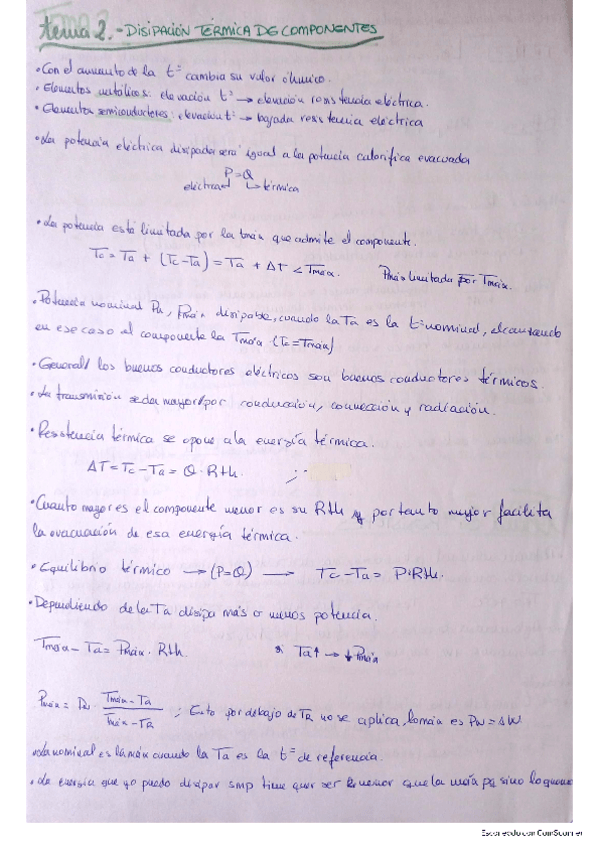 tema 2.- DISIPACIÓN TÉRMICA DE COMPONENTES
• Con el aumento de la tª cambia su valor óhmico.
• Elementos metálicos: elevación tª → elevación resistencia eléctrica.
• Elementos semiconductores: elevación tª → bajada resistencia eléctrica
• La potencia eléctrica disipada será igual a la potencia calorífica evacuada
P = Q
eléctrica ↵ ↳ térmica
• La potencia está limitada por la tmáx que admite el componente.
Tc = Ta + (Tc-Ta) = Ta + ΔT < Tmáx. Pmáx limitada por Tmáx.
• Potencia nominal Pn, Pmáx disipable, cuando la Ta es la t nominal, alcanzando
en ese caso el componente la Tmáx (Tc = Tmáx)
• General/ los buenos conductores eléctricos son buenos conductores térmicos.
• La transmisión se da mayor/ por conducción, convección y radiación.
• Resistencia térmica se opone a la energía térmica.
ΔT = Tc - Ta = Q · Rth.
• Cuanto mayor es el componente menor es su Rth y por tanto mejor facilita
la evacuación de esa energía térmica.
• Equilibrio térmico → (P=Q) → Tc - Ta = P·Rth.
• Dependiendo de la Ta disipa más o menos potencia.
Tmáx - Ta = Pmáx · Rth. si Ta↑ → ↓Pmáx
Pmáx = Pn · Tmáx - Ta / Tmáx - TR ; Esto por debajo de TR no se aplica, la máx es
• La nominal es la máx cuando la Ta es la tª de referencia.
• La energía que yo puedo disipar smp tiene que ser menor que la máx pq sino lo quemo
Escaneado con CamScanner